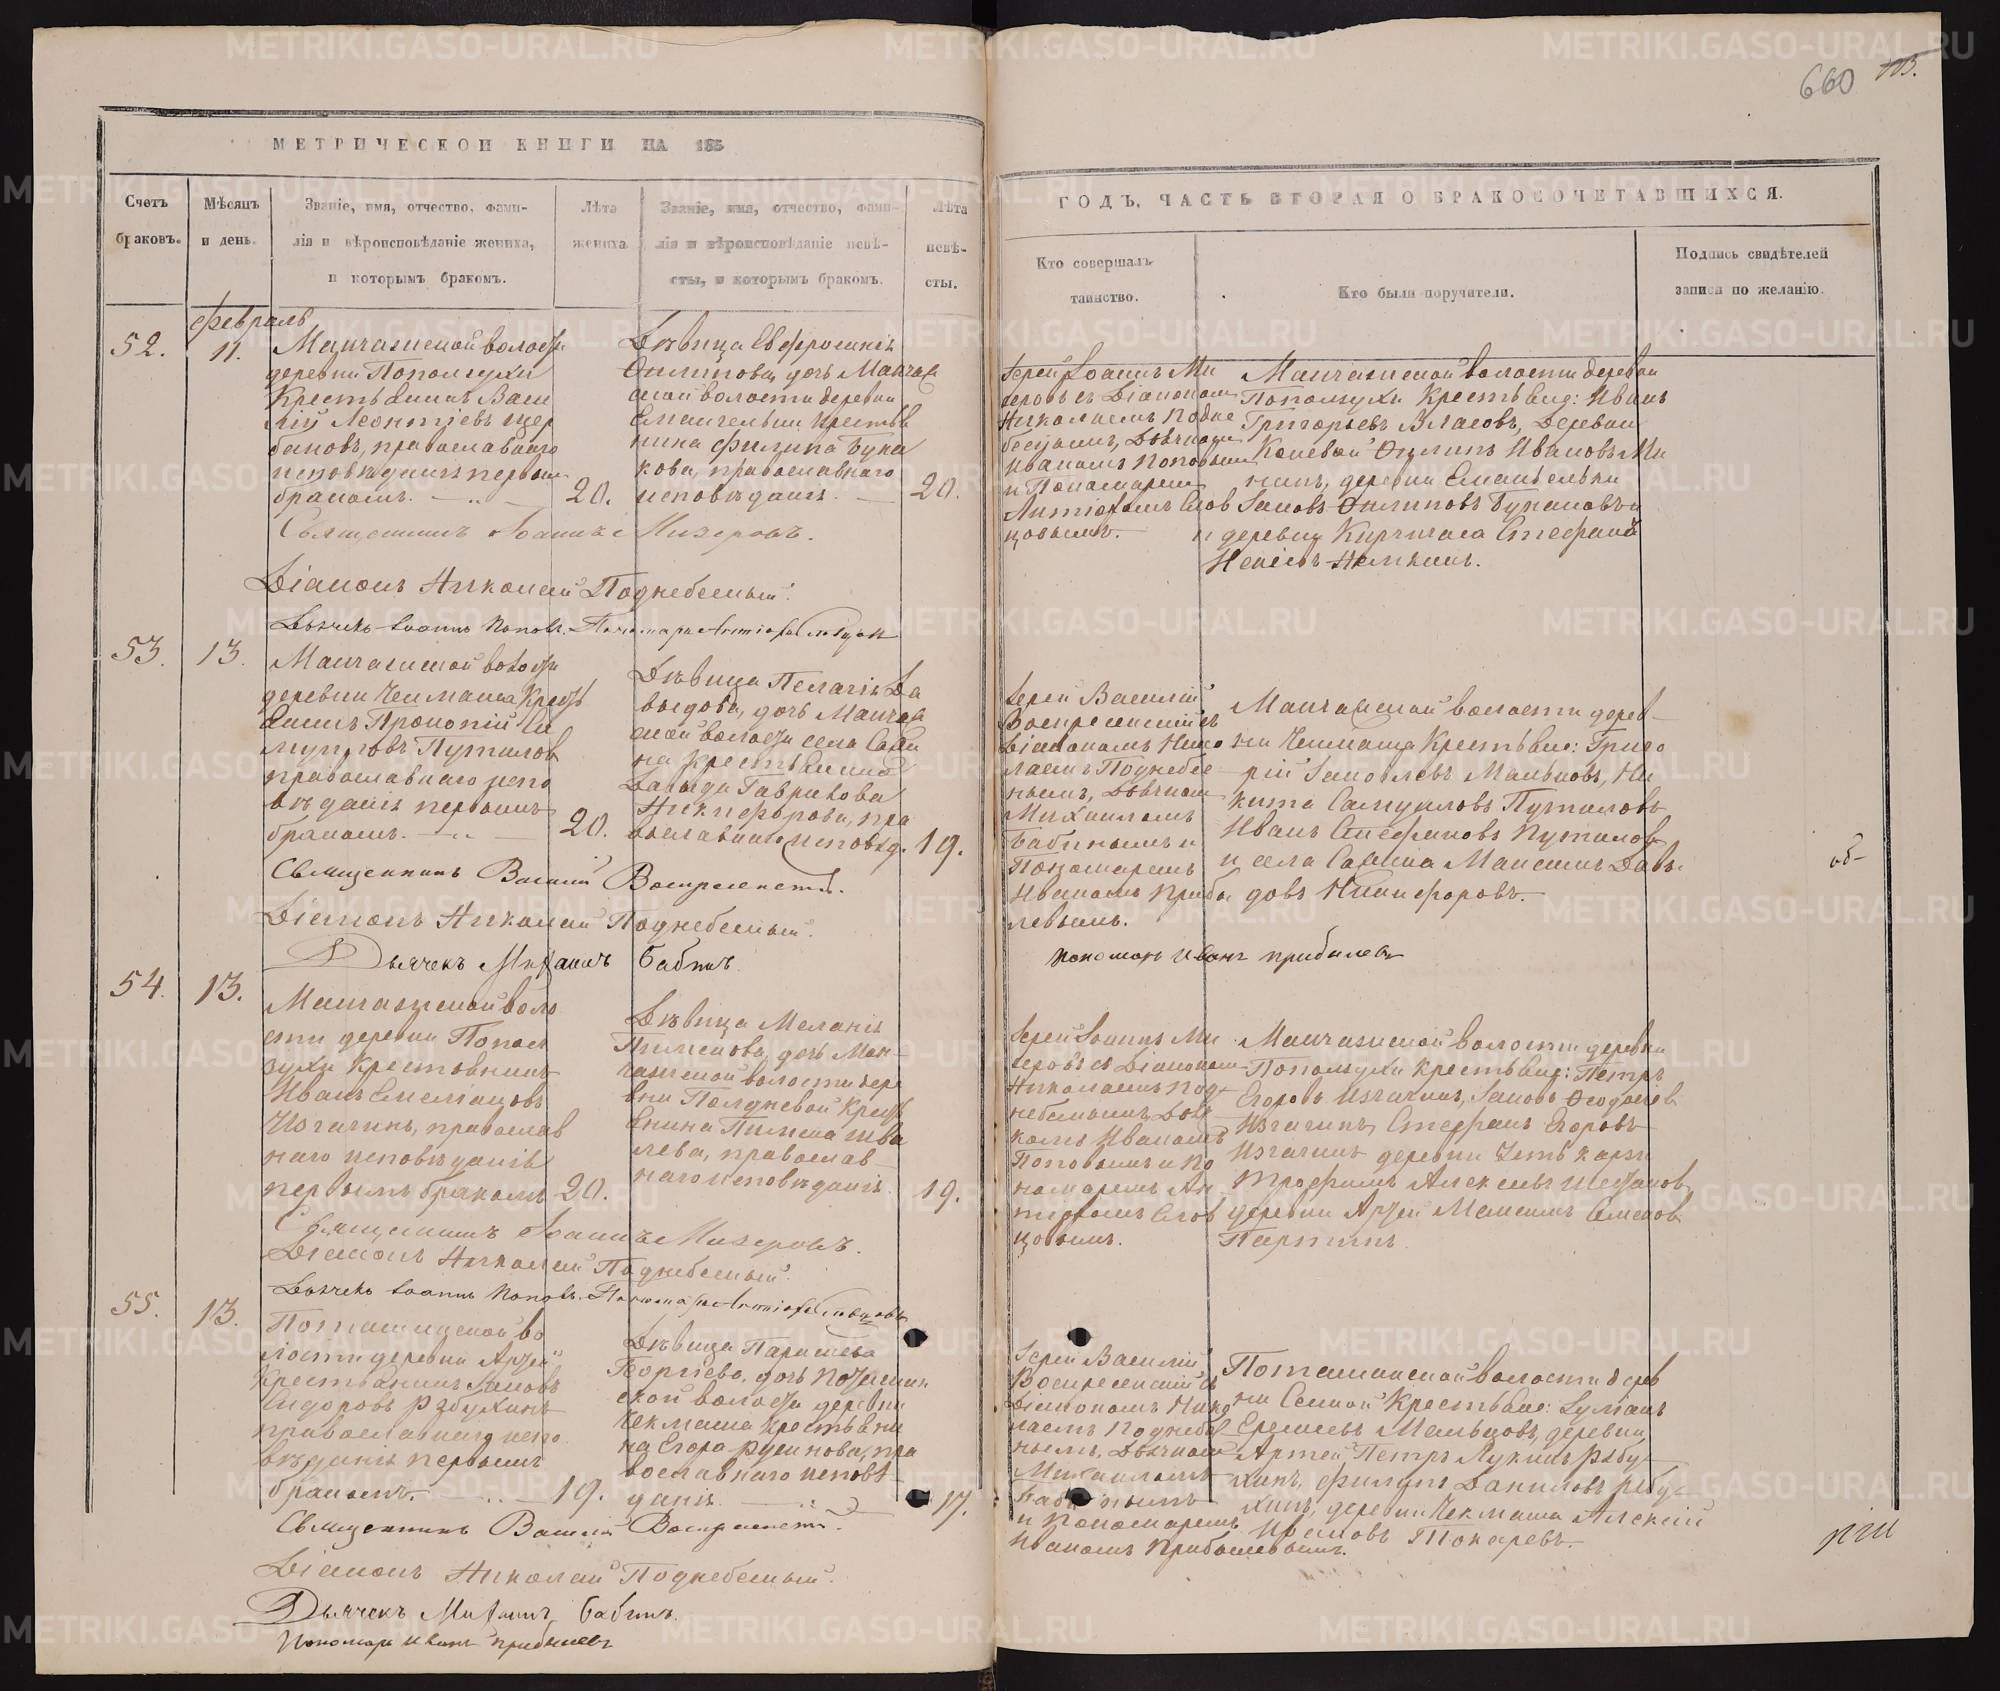 660 115.
МЕТРИЧЕСКОЙ КНИГИ НА 185
ГОДЪ, ЧАСТЬ ВТОРАЯ О БРАКОСОЧЕТАВШИХСЯ.
Счетъ браковъ.
Мѣсяцъ и день.
Званіе, имя, отчество, фами-
лія и вѣроисповѣданіе жениха,
и которымъ бракомъ.
Лѣта жениха
Званіе, имя, отчество, фами-
лія и вѣроисповѣданіе невѣ-
сты, и которымъ бракомъ.
Лѣта невѣ-
сты.
Кто совершалъ
таинство.
Кто были поручители.
Подпись свидѣтелей
записи по желанію.
февраль
52.
11.
Манчажской волости
деревни Попользухи
Крестьянинъ Васи
лій Леонтіевъ Щер
баковъ, православнаго
исповѣданія первым
бракомъ.
20.
Дѣвица Евфросинія
Филипова, дочь Манчаж
ской волости деревни
Емангельки крестья
нина Филипа Бука
кова, православнаго
исповѣданія.
20.
Іерей Іоаннъ Ми
зеровъ съ Діакономъ
Николаемъ Подне
беснымъ, Дьячкомъ
Иваномъ Поповымъ
и Пономаремъ
Антіофомъ Слов
цовымъ.
Манчажской волости деревни
Попользухи Крестьяне: Иванъ
Григорьевъ Власовъ, деревни
Филипъ Ивановъ
деревни
Іаковъ Филиповъ Букаковъ и
деревни Стефанъ
Священникъ Іоаннъ Мизеровъ.
Діаконъ Николай Поднебесный.
Дьячекъ Іоаннъ Поповъ. Пономарь
53.
13.
Манчажской волости
деревни Чекмаша Кресть
янинъ Прокопій Са
муиловъ Путиловъ
православнаго испо
вѣданія первымъ
бракомъ.
20.
Дѣвица Пелагія Да
выдова, дочь Манчаж
ской волости села Сажи
на Крестьянина
Давыда Гаврилова
Никифорова, пра
вославнаго исповѣд.
19.
Іерей Василій
Воскресенскій съ
Діакономъ Нико
лаемъ Поднебес
нымъ, Дьячкомъ
Михаиломъ
Бабинымъ и
Пономаремъ
Иваномъ Прибы
левымъ.
Манчажской волости дерев-
ни Чекмаша Крестьяне: Григо
рій Іаковлевъ Мальцовъ, Ни
кита Самуиловъ Путиловъ
Иванъ Стефановъ Путиловъ
и села Сажина Максимъ Давы
довъ Никифоровъ.
Священникъ Василій Воскресенскій.
Діаконъ Николай Поднебесный.
Дьячекъ Михаилъ Бабинъ.
пономарь Иванъ прибылевъ
54.
13.
Манчажской воло
сти деревни Пополь
зухи Крестьянинъ
Иванъ Емельяновъ
Изгагинъ, православ
наго исповѣданія
первымъ бракомъ
20.
Дѣвица Меланія
Пименова, дочь Ман-
чажской волости дере
вни Полдневой Кресть
янина Пимена Шва
лева, православ
наго исповѣданія.
19.
Іерей Іоаннъ Ми
зеровъ съ Діакономъ
Николаемъ Под
небеснымъ Дьяч
комъ Иваномъ
Поповымъ и По
номаремъ Ан
тіофомъ Слов
цовымъ.
Манчажской волости деревни
Попользухи крестьяне: Петръ
Егоровъ Изгагинъ, Іаковъ
Изгагинъ Стефанъ Егоровъ
Изгагинъ деревни
Трофимъ Алексѣевъ
деревни Артей Максимъ Семенов
Паршинъ
Священникъ Іоаннъ Мизеровъ.
Діаконъ Николай Поднебесный.
Дьячекъ Іоаннъ Поповъ. Пономарь Словцовъ
55.
13.
Поташинской во
лости деревни Артей
Крестьянинъ Іаковъ
Сидоровъ Рябухинъ
православнаго испо
вѣданія первымъ
бракомъ.
19.
Дѣвица Парасгева
Георгіева, дочь Поташин
ской волости деревни
Чекмаша Крестьяни
на Егора Русинова, пра
вославнаго исповѣ
данія.
17.
Іерей Василій
Воскресенскій съ
Діакономъ Нико
лаемъ Поднебес
нымъ, Дьячкомъ
Михаиломъ
Бабинымъ
и Пономаремъ
Иваномъ Прибылевымъ.
Поташинской волости дерев
ни Сенной Крестьяне: Лукіанъ
Еремѣевъ Мальцовъ, деревни
Артей Петръ Лукинъ Рябу-
хинъ, Филипъ Даниловъ Рябу-
хинъ, деревни Чекмаша Алексій
Ивановъ Токаревъ.
Священникъ Василій Воскресенскій.
Діаконъ Николай Поднебесный.
Дьячекъ Михаилъ Бабинъ.
Пономарь Иванъ прибылевъ
METRIKI.GASO-URAL.RU